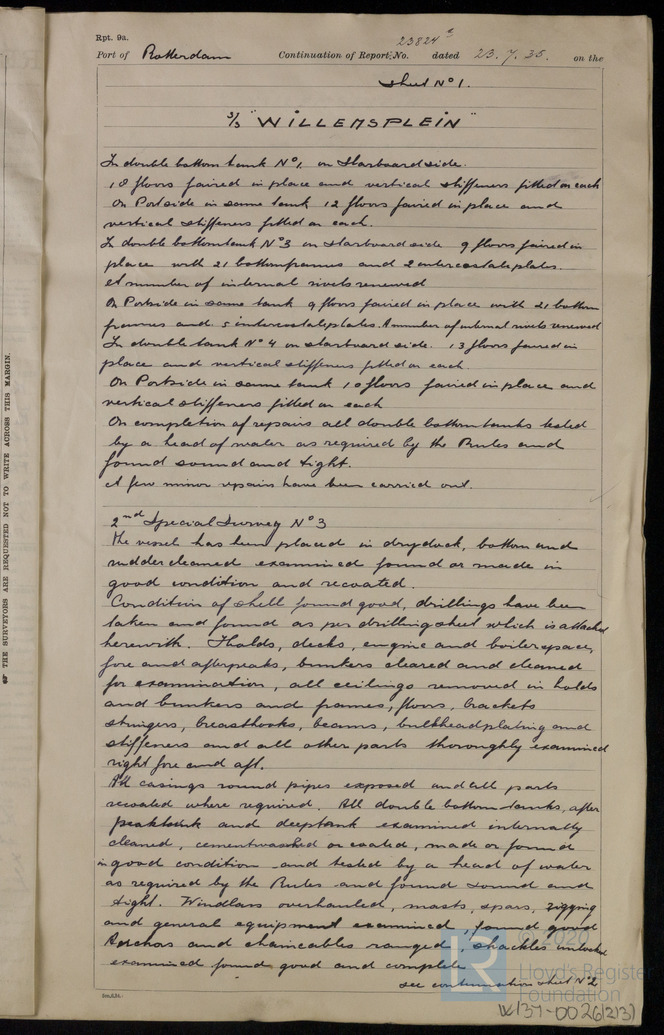 Rpt. 9a.
23824 a
Port of Rotterdam Continuation of Report No. dated 23.7.35. on the
Sheet No 1.
S/S "WILLEMSPLEIN"
In double bottom tank No 1 on Starboardside.
18 floors faired in place and vertical stiffeners fitted on each
On Portside in same tank 12 floors faired in place and
vertical stiffeners fitted on each.
In double bottomtank No 3 on starboard side 9 floors faired in
place with 21 bottomframes and 2 intercostalplates.
A number of internal rivets renewed
On Portside in same tank 9 floors faired in place with 21 bottom
frames and 5 intercostalplates. A number of internal rivets renewed
In double tank No 4 on starboard side. 13 floors faired in
place and vertical stiffeners fitted on each.
On Portside in same tank 10 floors faired in place and
vertical stiffeners fitted on each
On completion of repairs all double bottom tanks tested
by a head of water as required by the Rules and
found sound and tight.
A few minor repairs have been carried out.
2nd Special Survey No 3
The vessel has been placed in drydock, bottom and
rudder cleaned examined found or made in
good condition and recoated.
Condition of shell found good, drillings have been
taken and found as per drilling sheet which is attached
herewith. Holds, decks, engine and boilerspaces,
fore and afterpeaks, bunkers cleared and cleaned
for examination, all ceilings removed in holds
and bunkers and frames, floors, brackets
stringers, breasthooks, beams, bulkheadplating and
stiffeners and all other parts thoroughly examined
right fore and aft.
All casings round pipes exposed and all parts
recoated where required. All double bottom tanks, after
peaktank and deeptank examined internally
cleaned, cementwashed or coated, made or found
in good condition and tested by a head of water
as required by the Rules and found sound and
tight. Windlass overhauled, masts, spars, rigging
and general equipment examined, found good
Anchors and chaincables ranged, shackles
examined found good and complete
see continuation sheet No 2
OF THE SURVEYORS ARE REQUESTED NOT TO WRITE ACROSS THIS MARGIN.
© 2020
LR
Lloyd's Register
Foundation
W137-0026(2/3)